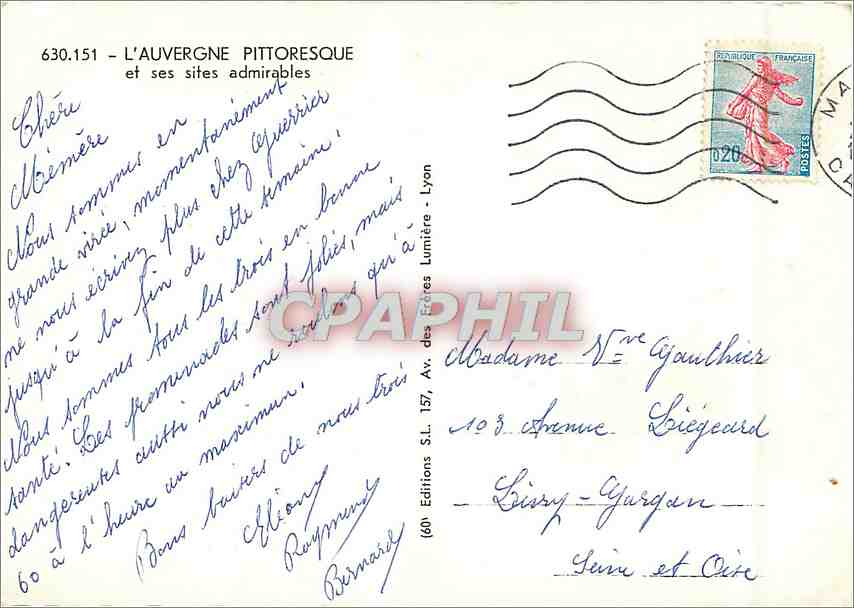 630.151 - L'AUVERGNE PITTORESQUE
et ses sites admirables
Chère
Mémère
Nous sommes en
grande virée, momentanément
ne nous écrivez plus chez Guerrier
jusqu'à la fin de cette semaine.
Nous sommes tous les trois en bonne
santé. Les promenades sont jolies, mais
dangereuses aussi nous ne roulons qu'à
60 à l'heure au maximum.
Bons baisers de nous trois
Raymond
Bernard
(60) Editions S.L. 157, Av. des Frères Lumière - Lyon
REPUBLIQUE FRANÇAISE
0,20
POSTES
MA
CA
CPAPHIL
Madame Vve Gauthier
103 Avenue Liégeard
Livry-Gargan
Seine et Oise